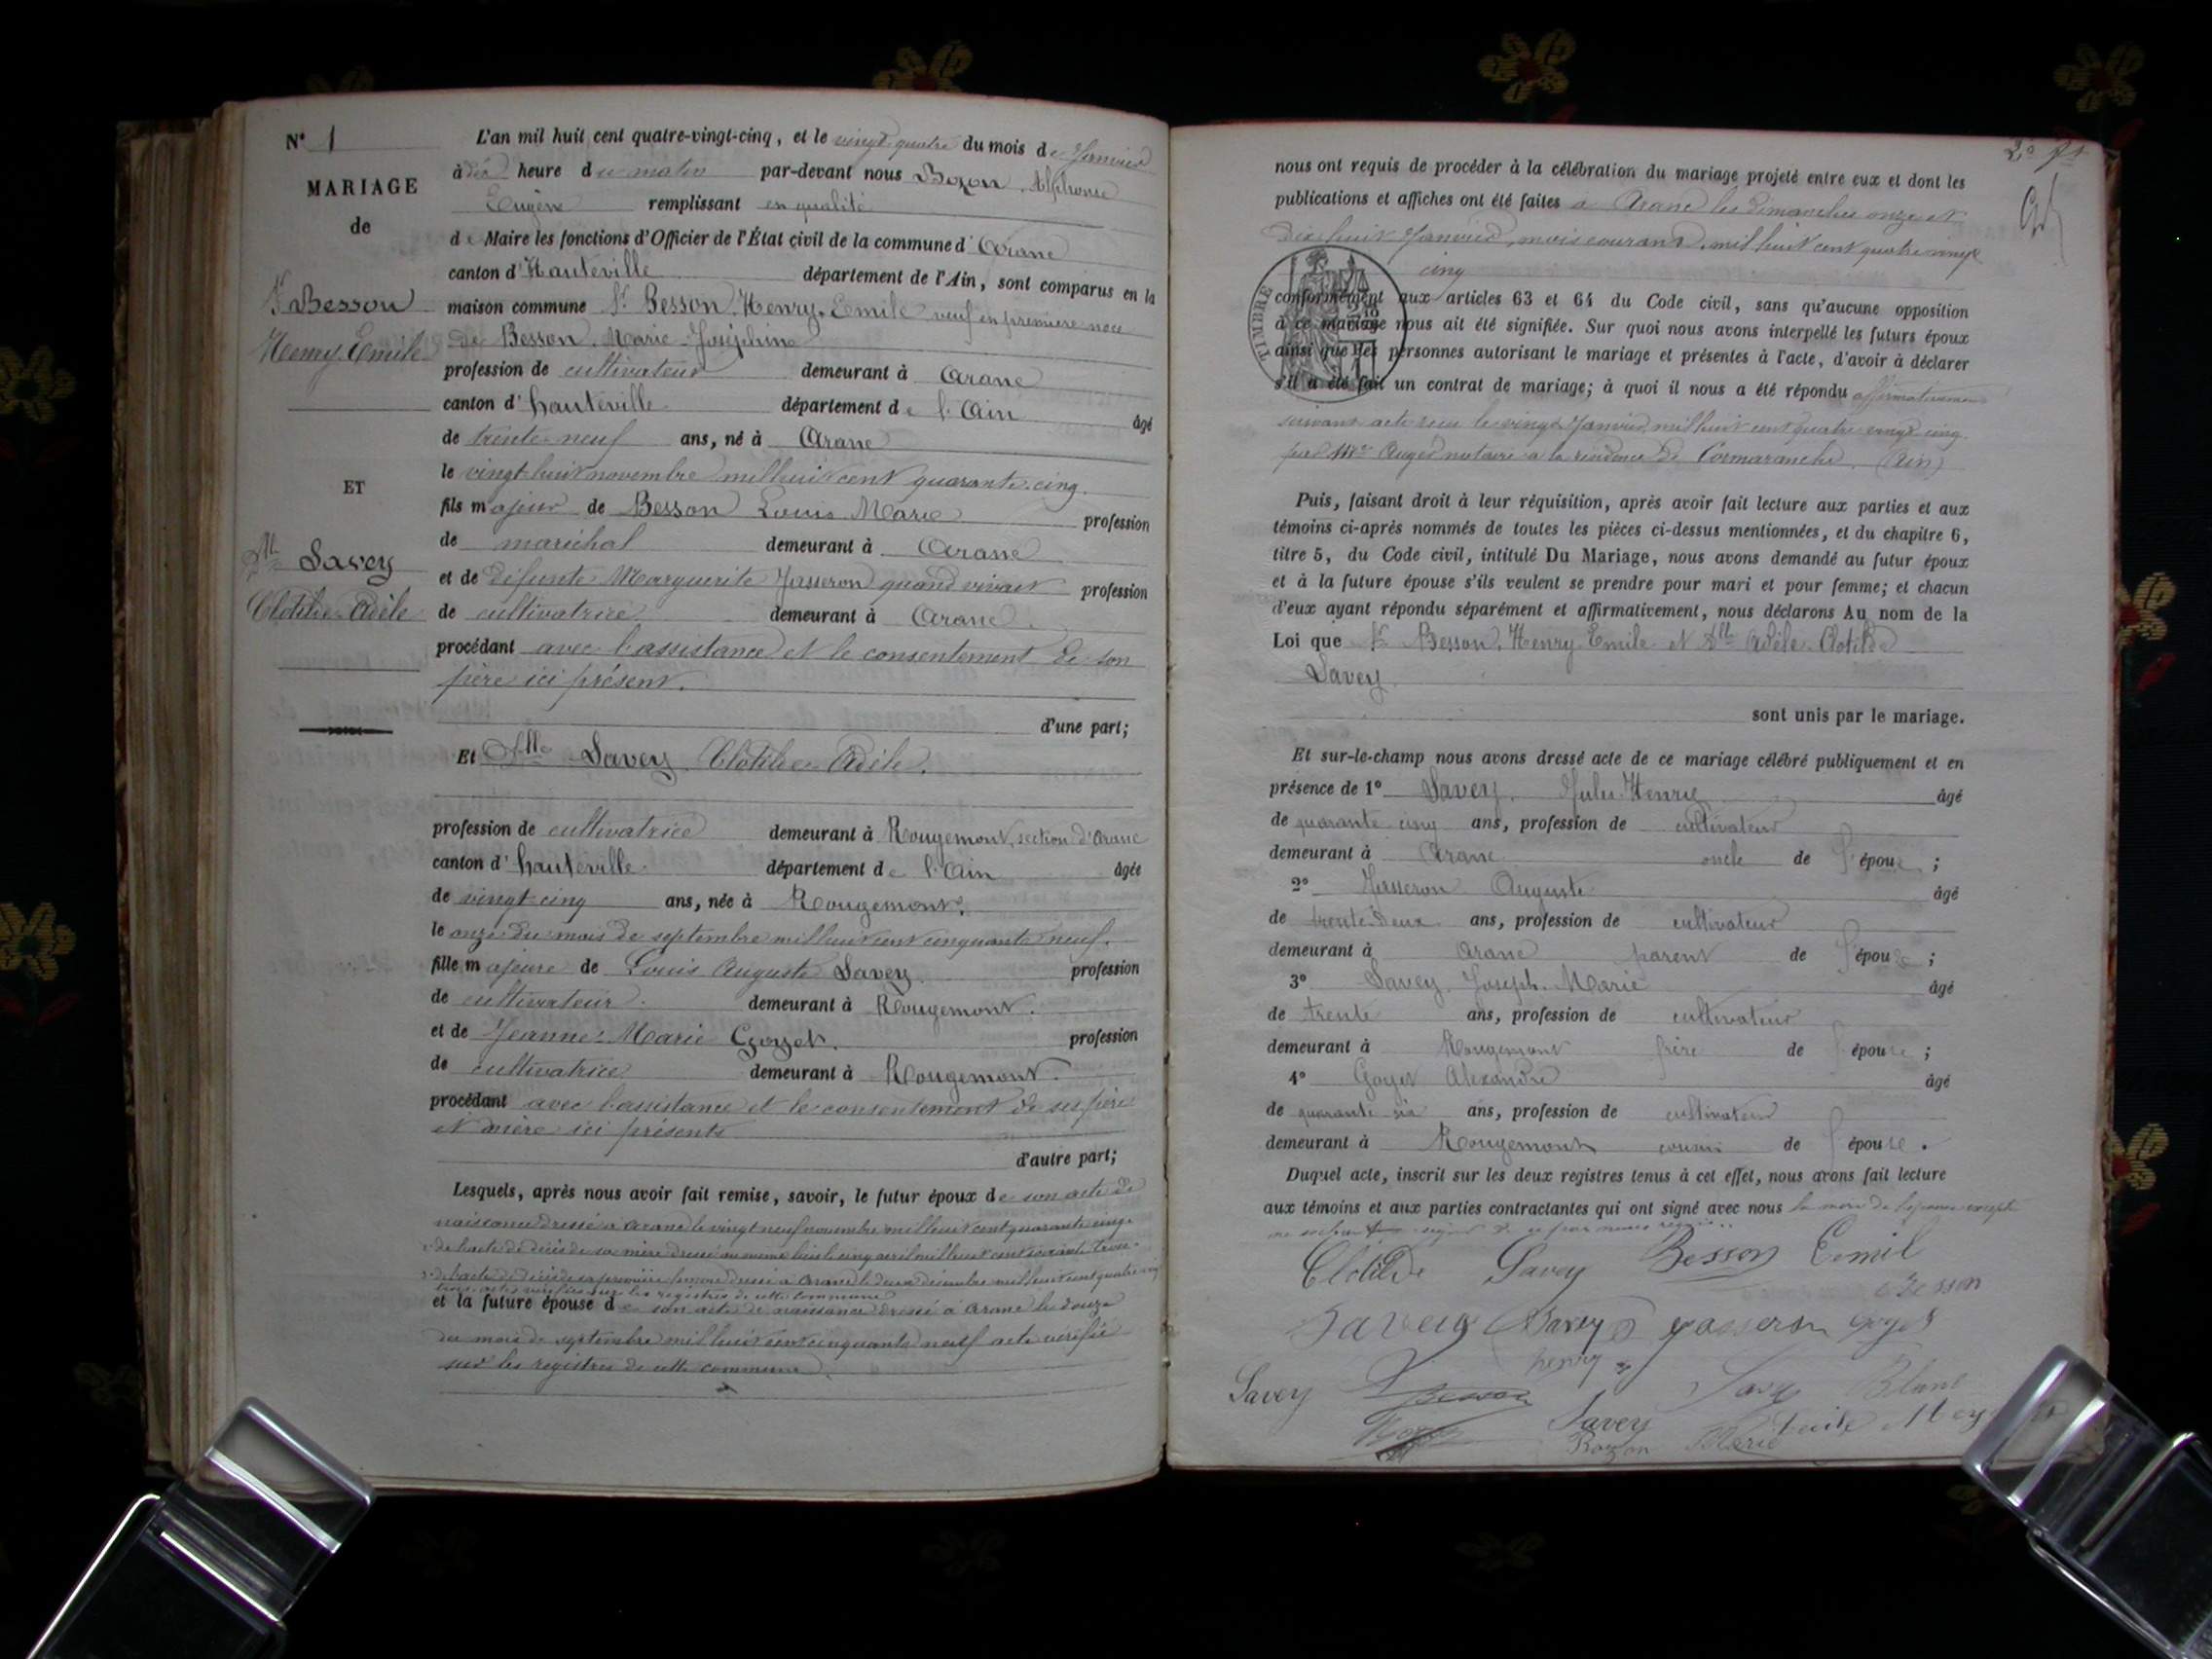 N° 1
MARIAGE
de
Sr Besson
Henry Emile
ET
Dlle Savey
Clotilde Adèle
L'an mil huit cent quatre-vingt-cinq, et le vingt quatre du mois de Janvier
à dix heure du matin par-devant nous Bozon, Alphonse
Eugène remplissant en qualité
de Maire les fonctions d'Officier de l'État civil de la commune d'Arane
canton d'Hauteville département de l'Ain, sont comparus en la
maison commune Sr Besson, Henry, Emile veuf en première noce
de Besson, Marie-Joséphine
profession de cultivateur demeurant à Arane
canton d'hauteville département de l'Ain âgé
de trente-neuf ans, né à Arane
le vingt-huit novembre mil huit cent quarante-cinq.
fils majeur de Besson Louis Marie profession
de maréchal demeurant à Arane
et de défunte Marguerite Jasseron quand vivait profession
de cultivatrice demeurant à Arane.
procédant avec l'assistance et le consentement de son
père ici présent.
d'une part;
Et Dlle Savey, Clotilde-Adèle.
profession de cultivatrice demeurant à Rougemont, section d'Arane
canton d'hauteville département de l'Ain âgée
de vingt-cinq ans, née à Rougemont.
le onze du mois de septembre mil huit cent cinquante neuf.
fille majeure de Louis Auguste Savey profession
de cultivateur. demeurant à Rougemont.
et de Jeanne-Marie Goyet. profession
de cultivatrice demeurant à Rougemont.
procédant avec l'assistance et le consentement de ses père
et mère ici présents
d'autre part;
Lesquels, après nous avoir fait remise, savoir, le futur époux de son acte de
naissance dressé à Arane le vingt neuf novembre mil huit cent quarante cinq.
2° de l'acte de décès de sa mère dressé au même lieu le cinq avril mil huit cent soixante trois.
3° de l'acte de décès de sa première femme dressé à Arane le deux décembre mil huit cent quatre
trois actes vérifiés sur les registres de cette commune
et la future épouse de son acte de naissance dressé à Arane le douze
du mois de septembre mil huit cent cinquante neuf acte vérifié
sur les registres de cette commune.
nous ont requis de procéder à la célébration du mariage projeté entre eux et dont les
publications et affiches ont été faites à Arane les dimanches onze et
dix huit Janvier, mois courant, mil huit cent quatre vingt
cinq
TIMBRE
conformément aux articles 63 et 64 du Code civil, sans qu'aucune opposition
à ce mariage nous ait été signifiée. Sur quoi nous avons interpellé les futurs époux
ainsi que les personnes autorisant le mariage et présentes à l'acte, d'avoir à déclarer
s'il a été fait un contrat de mariage; à quoi il nous a été répondu affirmativement
suivant acte reçu le vingt Janvier mil huit cent quatre vingt cinq
par Me Auger notaire à la résidence de Cormaranche (Ain)
Puis, faisant droit à leur réquisition, après avoir fait lecture aux parties et aux
témoins ci-après nommés de toutes les pièces ci-dessus mentionnées, et du chapitre 6,
titre 5, du Code civil, intitulé Du Mariage, nous avons demandé au futur époux
et à la future épouse s'ils veulent se prendre pour mari et pour femme; et chacun
d'eux ayant répondu séparément et affirmativement, nous déclarons Au nom de la
Loi que Sr Besson, Henry Emile et Dlle Adèle-Clotilde
Savey
sont unis par le mariage.
Et sur-le-champ nous avons dressé acte de ce mariage célébré publiquement et en
présence de 1° Savey, Jules-Henry âgé
de quarante cinq ans, profession de cultivateur
demeurant à Arane oncle de l'épouse;
2° Jasseron Auguste âgé
de trente-deux ans, profession de cultivateur
demeurant à Arane parent de l'épouse;
3° Savey, Joseph-Marie âgé
de trente ans, profession de cultivateur
demeurant à Rougemont frère de l'épouse;
4° Goyet Alexandre âgé
de quarante six ans, profession de cultivateur
demeurant à Rougemont cousin de l'épouse.
Duquel acte, inscrit sur les deux registres tenus à cet effet, nous avons fait lecture
aux témoins et aux parties contractantes qui ont signé avec nous la mère de l'épouse excepté
Clotilde Savey Besson Emil
Besson
Savey Savey jasseron goyet
henry
Savey Besson Savey Blanc
Savey
Bozon Marie